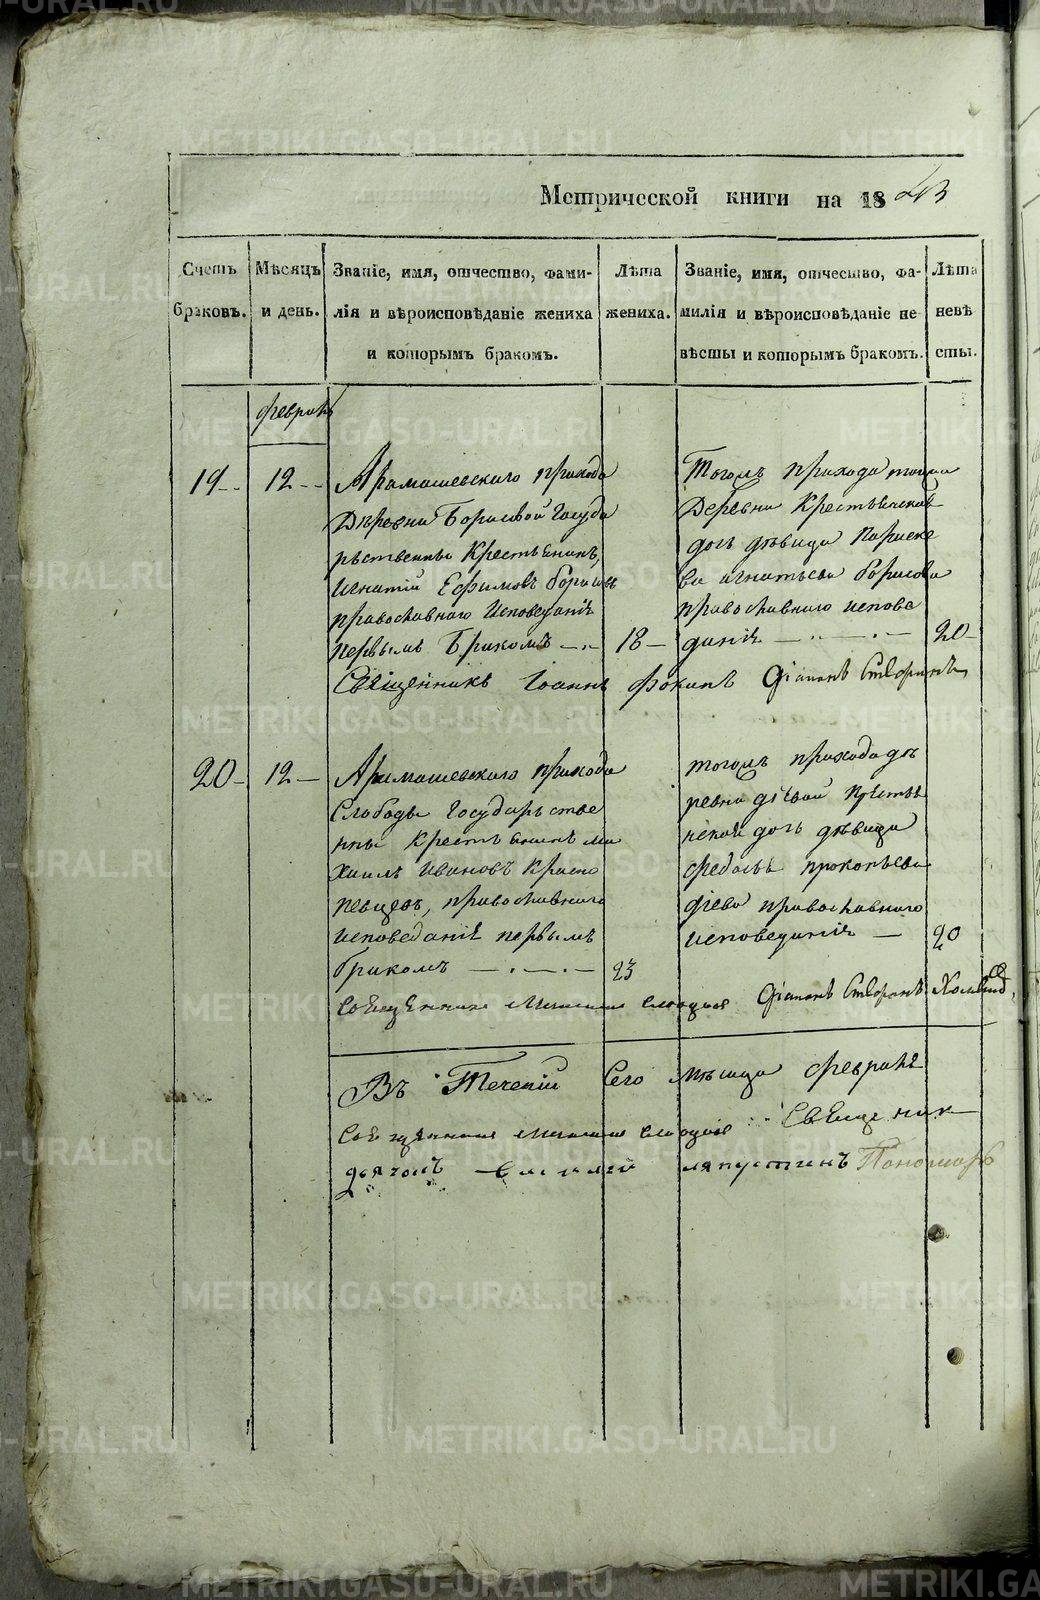 Метрической книги на 1843
Счетъ браковъ.
Мѣсяцъ и день.
Званіе, имя, отчество, фами-
лія и вѣроисповѣданіе жениха
и которымъ бракомъ.
Лѣта
жениха.
Званіе, имя, отчество, фа-
милія и вѣроисповѣданіе не-
вѣсты и которымъ бракомъ.
Лѣта
невѣ
сты.
февраль
19 12
Арамашевскаго прихода
Деревни Борисовой Госуда
рственны Крестьянинъ,
Игнатій Ефимовъ Борисовъ
православнаго Исповеданіе
первымъ Бракомъ 18
Тогожъ прихода тойжа
Деревни Крестьянская
доч девица Параске
ва игнатьева борисова
православнаго испове
даніе 20
Священникъ Іоаннъ Фокинъ Діаконъ
20 12
Арамашевскаго прихода
Слободы Государстве
нны Крестьянинъ ми
хаилъ Ивановъ Красно
певцевъ, православнаго
исповеданіе первымъ
бракомъ 23
тогожъ прихода де
ревни дѣвой кресть
нской доч девица
федосья прокопьева
дѣева православнаго
исповеданіе 20
священникъ Діаконъ
Въ Теченій Сего месяца февраля
священникъ Священник
дьячокъ ляпустинъ Пономарь
METRIKI.GASO-URAL.RU